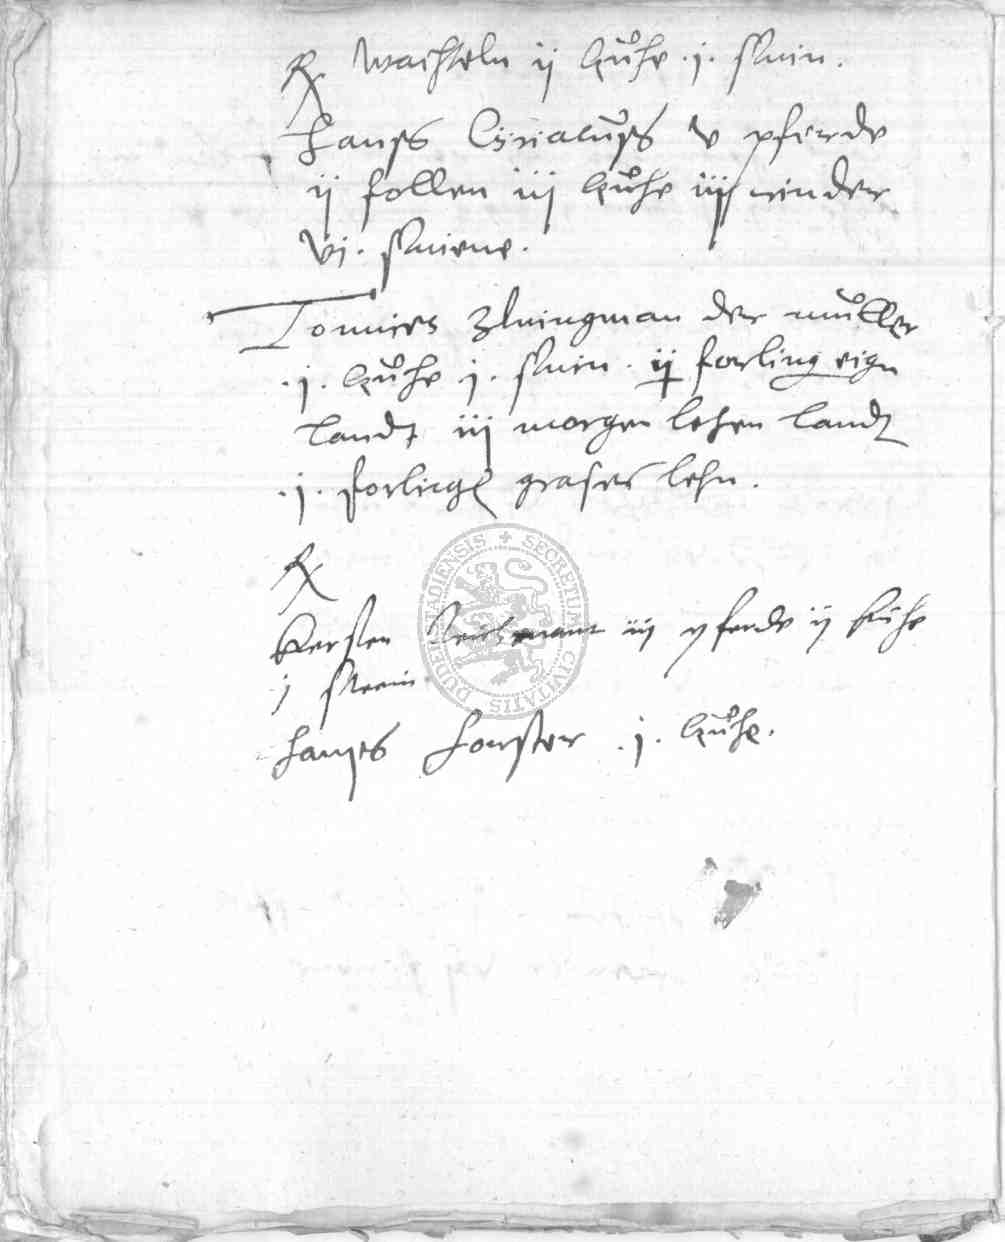 Wachteln ij kuhe .j. swin.
Hanß Ciriacuß v pferde
ij follen iij kuhe iiij rinder
vj. swiene.
Tonnies Zwingman der muller
.j. kuhe j. swin. ij forling eign
landt iij morgen lehen landt
.j. forling grases lehn.
Kersten iij pferde ij kuhe
j swein
Hanß Forster .j. kuhe.
SECRETUM CIVITATIS DUDERSTADIENSIS